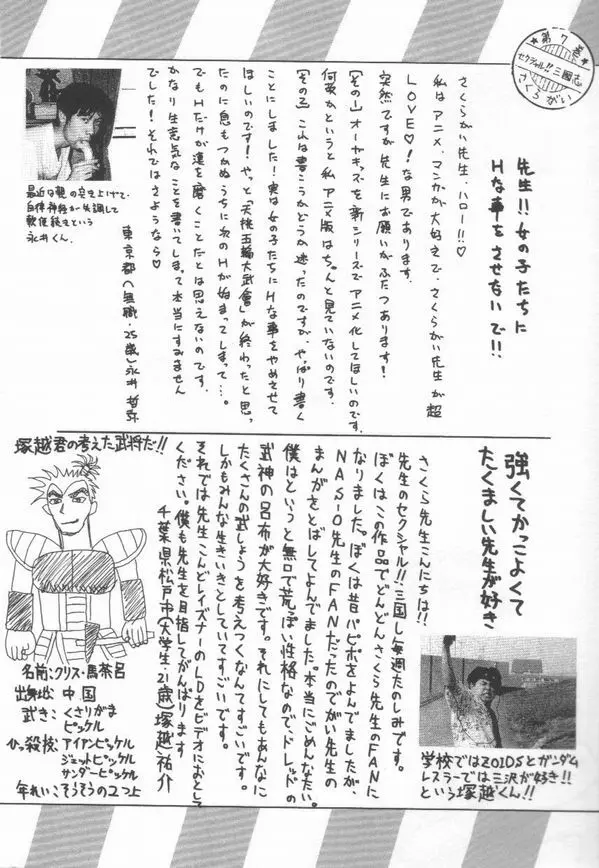 ★第7巻★
セクシャル!!三國志
さくらがい
先生!!女の子たちに
Hな事をさせないで!!
さくらがい先生、ハロー!!♡
私はアニメ・マンガが大好きで、さくらがい先生が超
LOVE♡!な男であります。
突然ですが先生にお願いがふたつあります!
【その1】オーヤキッズを新シリーズでアニメ化してほしいのです。
何故かというと私、アニメ版はちゃんと見ていないのです。
【その2】これは書こうかどうか迷ったのですが、やっぱり書く
ことにしました!実は女の子たちにHな事をやめさせて
ほしいのです!やっと「天桃五輪大武會」が終わったと思っ
たのに息もつかぬうちに次のHが始まってしまって…。
でもHだけが漢を磨くことだとは思えないのです。
かなり生意気なことを書いてしまって本当にすみません
でした!それではさようなら♡
東京都〈無職・25歳〉永井哲弥
最近は親の突き上げで、
自律神経が失調して
軟便続きという
永井くん。
強くてかっこよくて
たくましい先生が好き
さくら先生こんにちは!!
先生のセクシャル!!三国し毎週たのしみです。
ぼくはこの作品でどんどんさくら先生のFANに
なりました。ぼくは昔パピポをよんでましたが、
NAS-O先生のFANだったのでがい先生の
まんがをとばしてよんでました。本当にごめんなさい。
僕はというと無口で荒っぽい性格なので、ドレッドの
武神の呂布が大好きです。それにしてもあんなに
たくさんの武しょうを考えつくなんてすごいです。
しかもみんな生きいきとしていてすごいです。
それでは先生こんどレイズナーのLDをビデオにおとして
ください。僕も先生を目指してがんばります
千葉県松戸市〈大学生・21歳〉塚越祐介
塚越君の考えた武将だ!!
名前:クリス・馬茶呂
出身地:中国
武き:くさりがま
ピッケル
ひっ殺校:アイアンピッケル
ジェットピッケル
サンダーピッケル
年れいそうそうの2つ上
学校ではZOIDSとガンダム
レスラーでは三沢が好き!!
という塚越くん!!